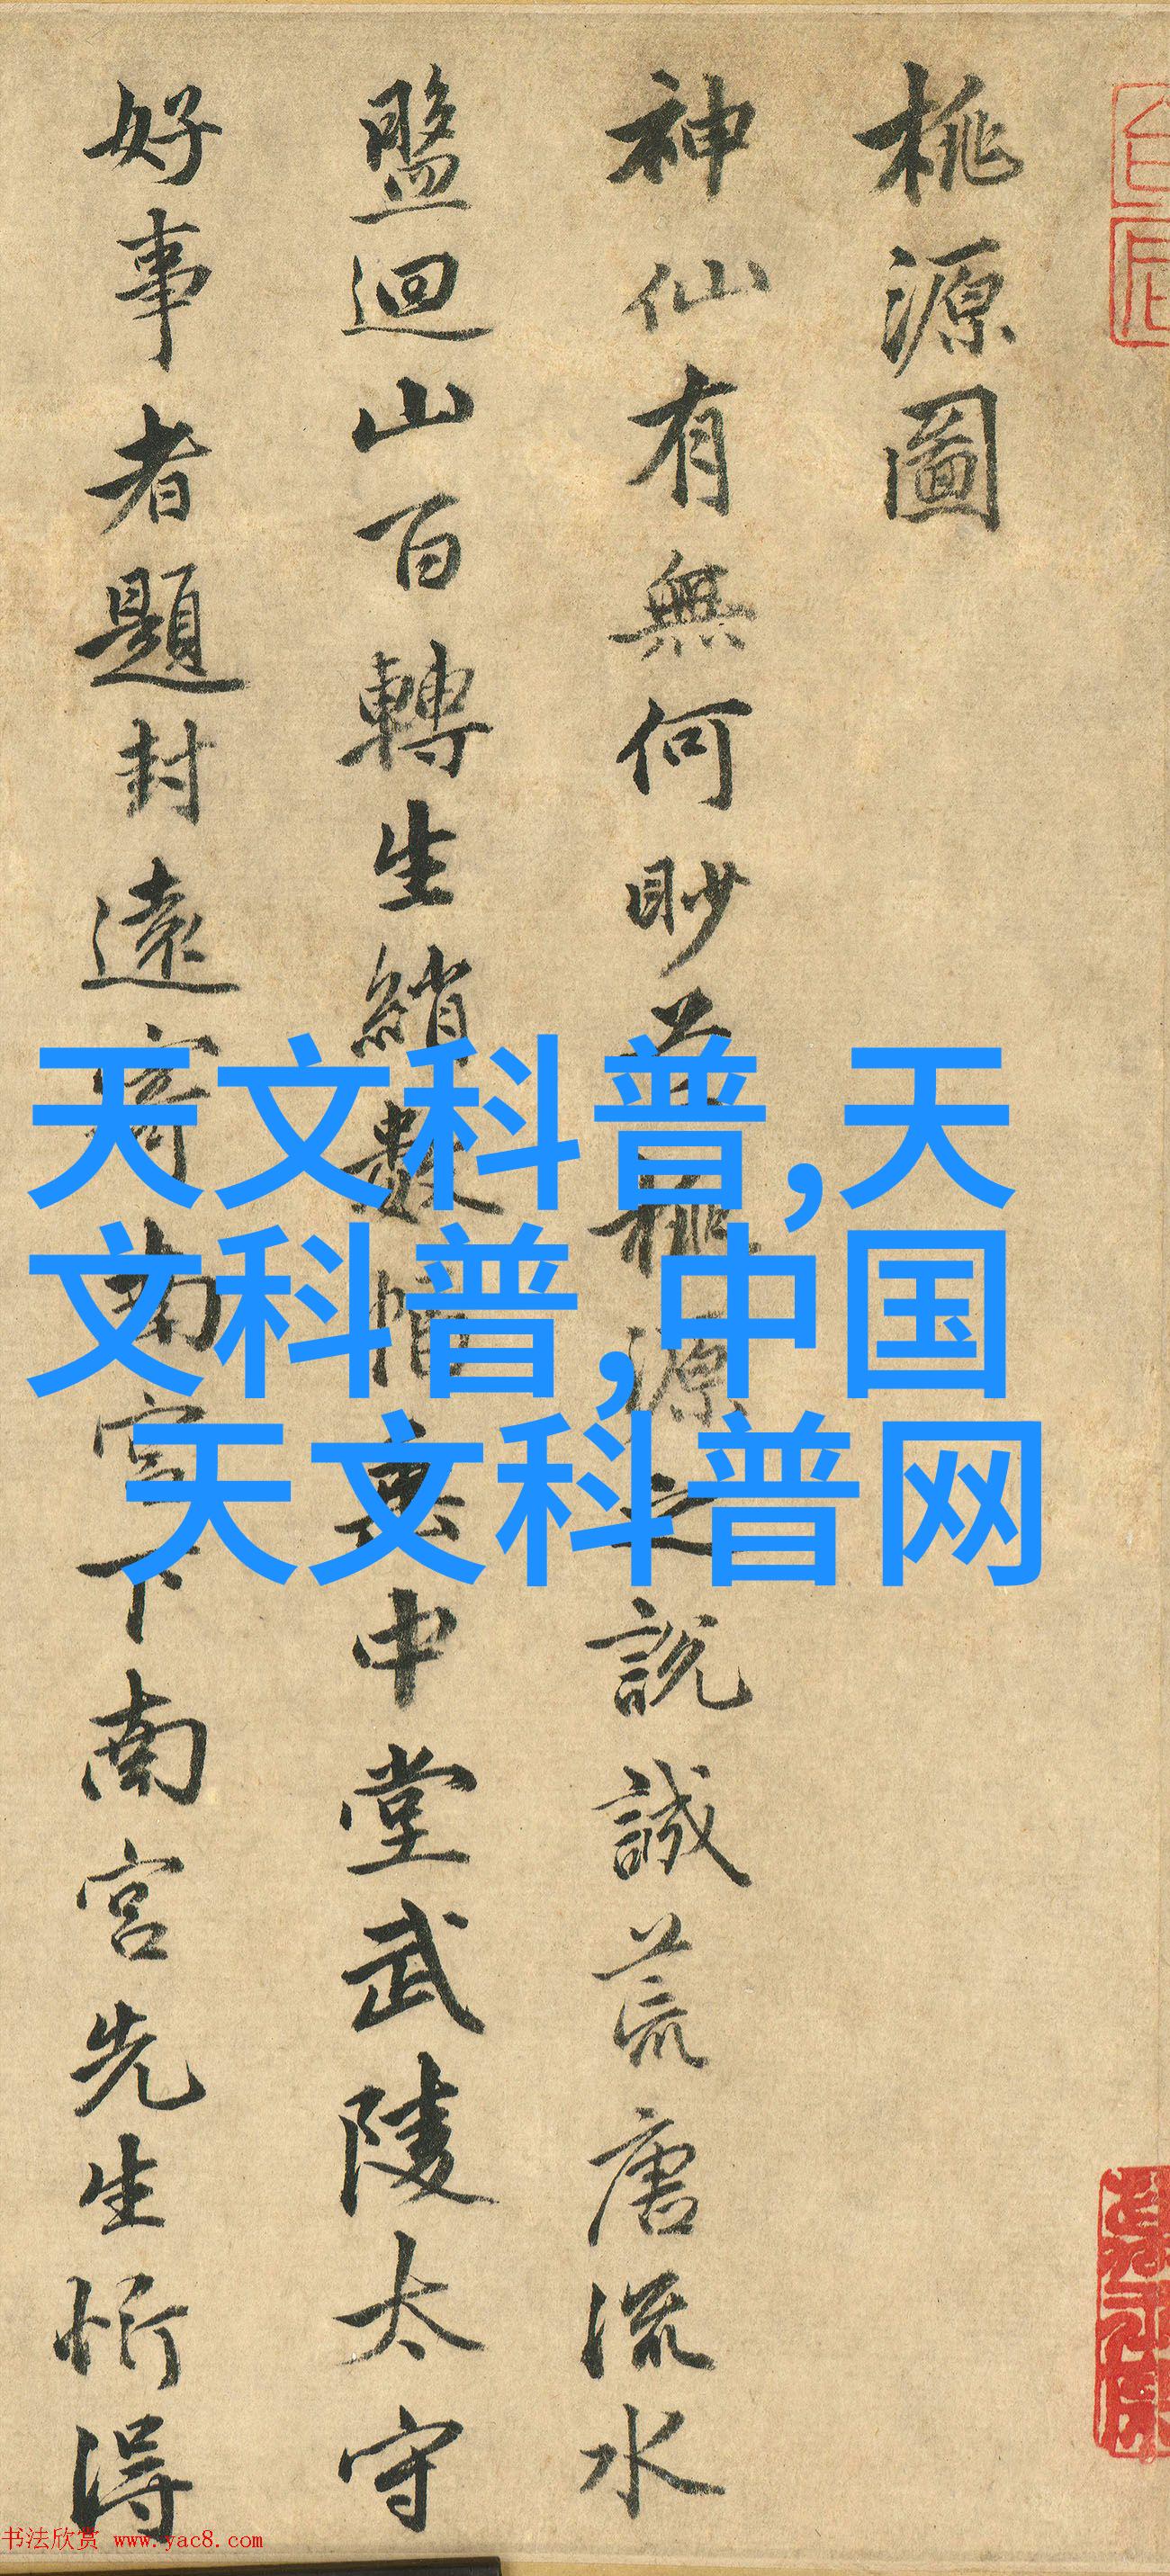 桃源圖
神仙有無何眇芒桃源之說誠荒唐流水
盤迴山百轉生綃數幅垂中堂武陵太守
好事者題封遠寄南宮下南宮先生忻得
天文科普,天
文科普,中国
天文科普网
书法欣赏 www.yac8.com